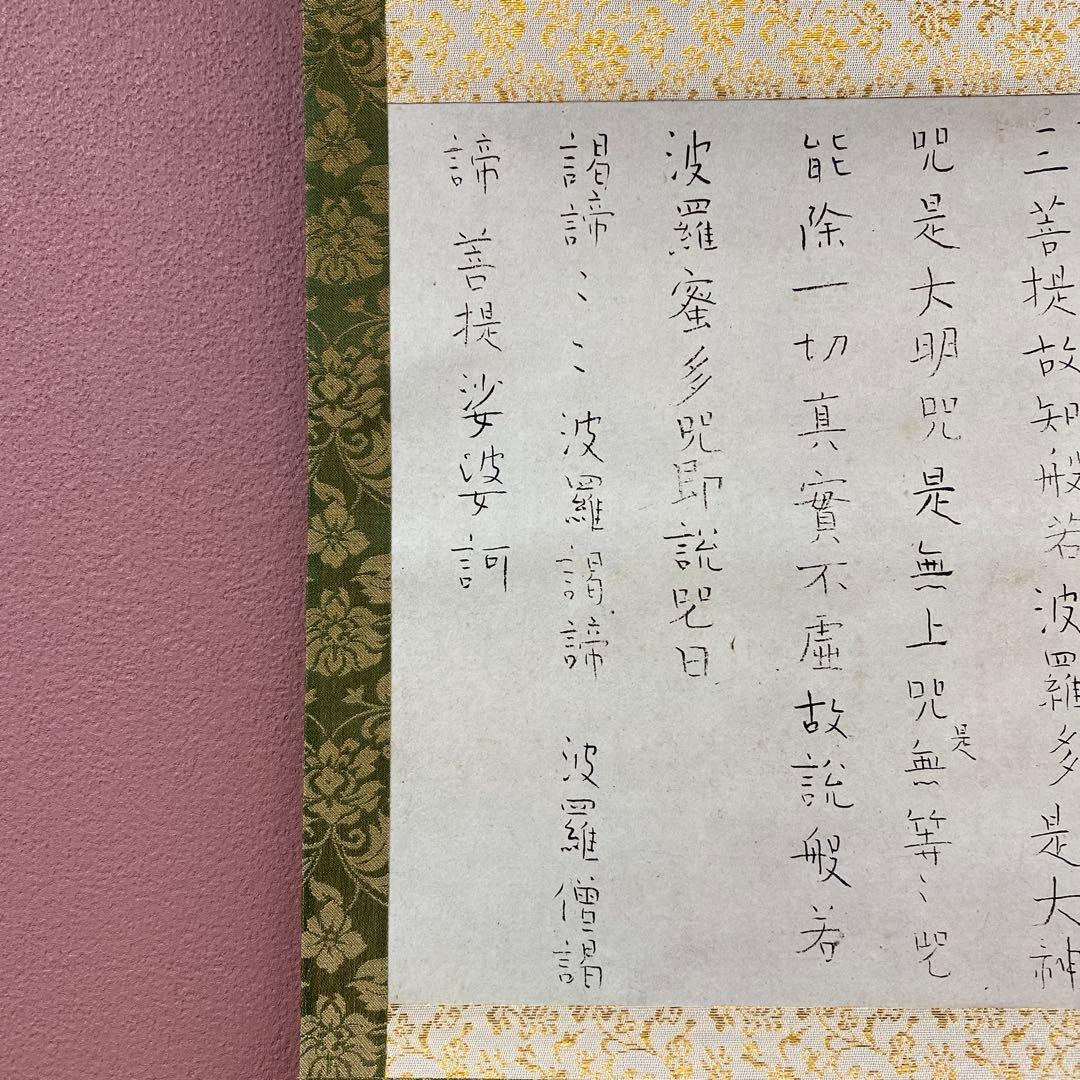 三菩提故知般若波羅多是大神
咒是大明咒是無上咒是無等〻咒
能除一切真實不虛故說般若
波羅蜜多咒即說咒曰
謁諦〻〻波羅謁諦 波羅僧謁
諦 菩提娑婆訶